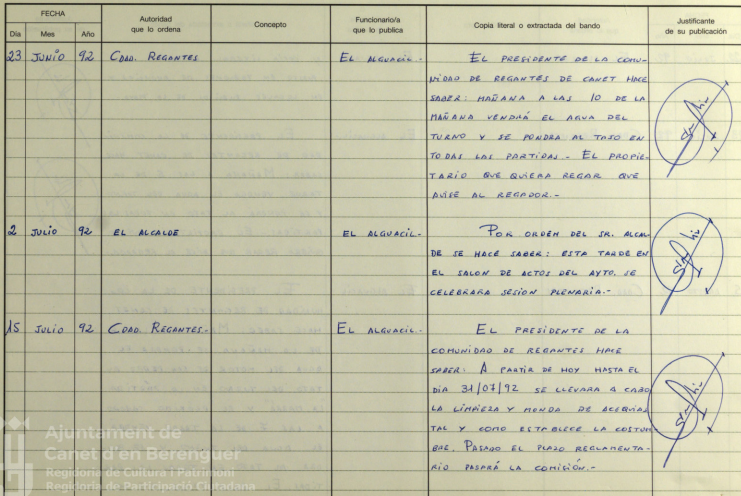 FECHA
Día Mes Año
Autoridad
que lo ordena
Concepto
Funcionario/a
que lo publica
Copia literal o extractada del bando
Justificante
de su publicación
23 JUNIO 92 CDAD. REGANTES EL ALGUACIL.-
EL PRESIDENTE DE LA COMU-
NIDAD DE REGANTES DE CANET HACE
SABER: MAÑANA A LAS 10 DE LA
MAÑANA VENDRÁ EL AGUA DEL
TURNO Y SE PONDRA AL TASO EN
TODAS LAS PARTIDAS - EL PROPIE-
TARIO QUE QUIERA REGAR QUE
AVISE AL REGADOR.-
2 JULIO 92 EL ALCALDE EL ALGUACIL-
POR ORDEN DEL SR. ALCAL-
DE SE HACE SABER: ESTA TARDE EN
EL SALON DE ACTOS DEL AYTO. SE
CELEBRARA SESION PLENARIA.-
15 JULIO 92 CDAD. REGANTES- EL ALGUACIL.-
EL PRESIDENTE DE LA
COMUNIDAD DE REGANTES HACE
SABER: A PARTIR DE HOY HASTA EL
DIA 31/07/92 SE LLEVARA A CABO
LA LIMPIEZA Y MONDA DE ACEQUIAS
TAL Y COMO ESTABLECE LA COSTUM
BRE. PASADO EL PLAZO REGLAMENTA-
RIO PASARÁ LA COMISIÓN.-
Ajuntament de
Canet d'en Berenguer
Regidoria de Cultura i Patrimoni
Regidoria de Participació Ciutadana